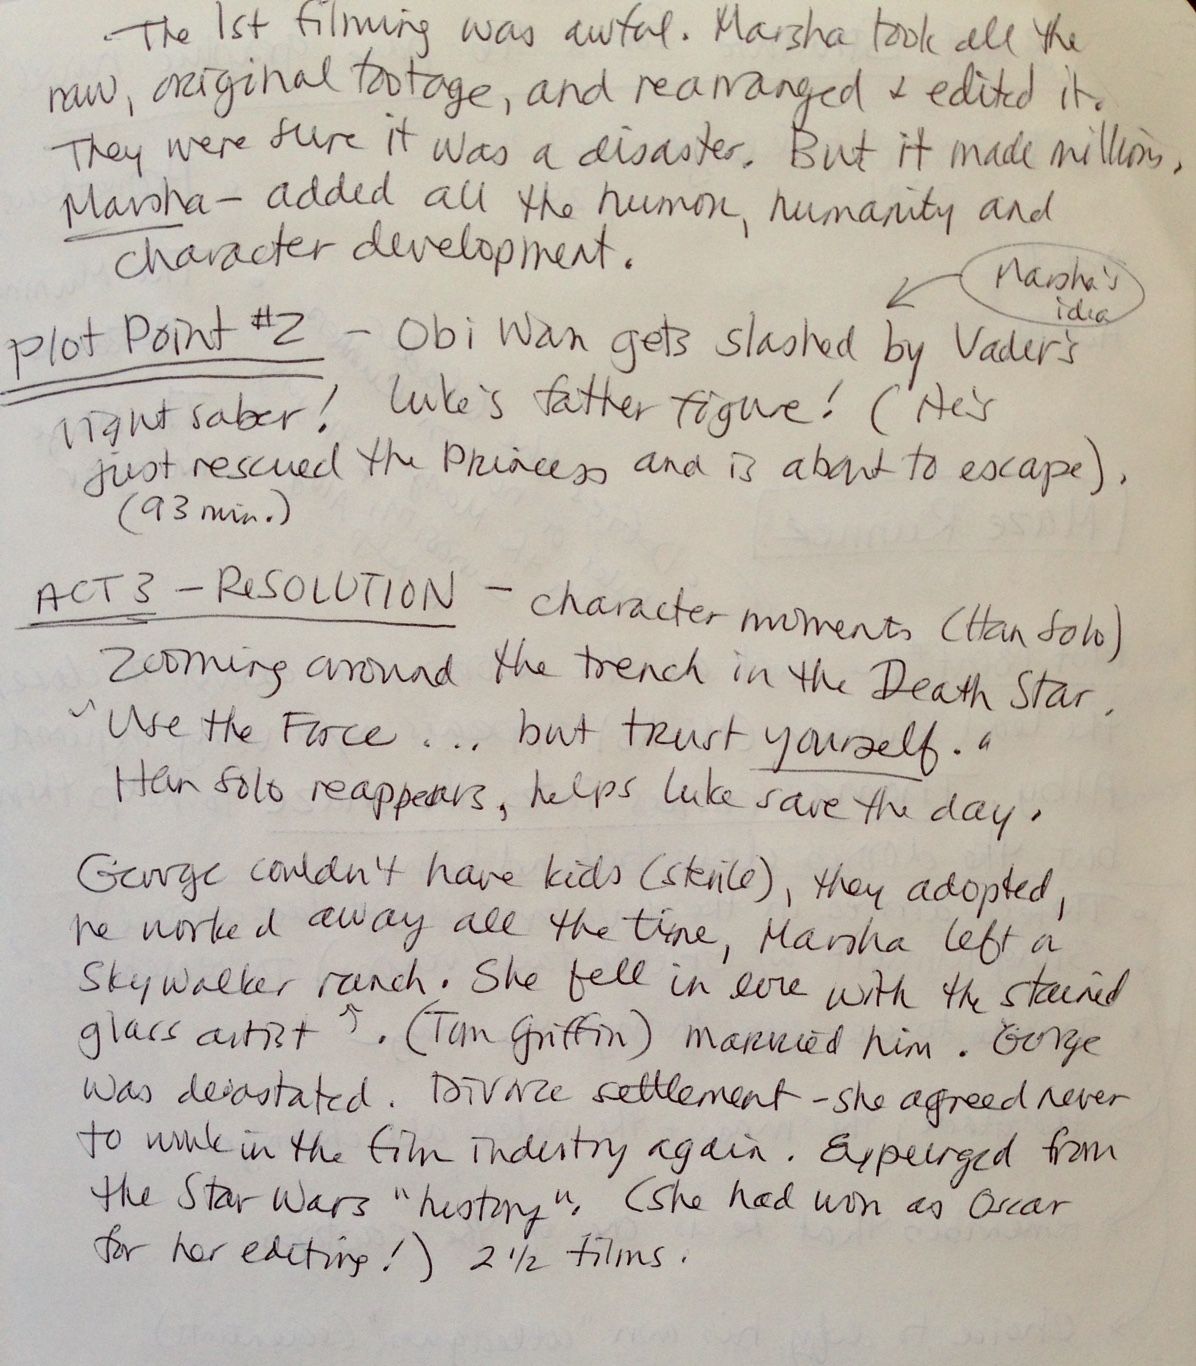 The 1st filming was awful. Marsha took all the
raw, original footage, and rearranged & edited it.
They were sure it was a disaster. But it made millions.
Marsha – added all the humor, humanity and
character development.
Marsha's
idea
Plot Point #2 – Obi Wan gets slashed by Vader's
light saber! Luke's father figure! (He's
just rescued the Princess and is about to escape).
(93 min.)
ACT 3 – RESOLUTION – character moments (Han Solo)
Zooming around the trench in the Death Star.
"Use the Force ... but trust yourself."
Han Solo reappears, helps Luke save the day.
George couldn't have kids (sterile), they adopted,
he worked away all the time, Marsha left a
Skywalker ranch. She fell in love with the stained
glass artist ↑. (Tom Griffin) married him. George
was devastated. Divorce settlement – she agreed never
to work in the film industry again. Expeurged from
the Star Wars "history". (She had won as Oscar
for her editing!) 2 1/2 films.